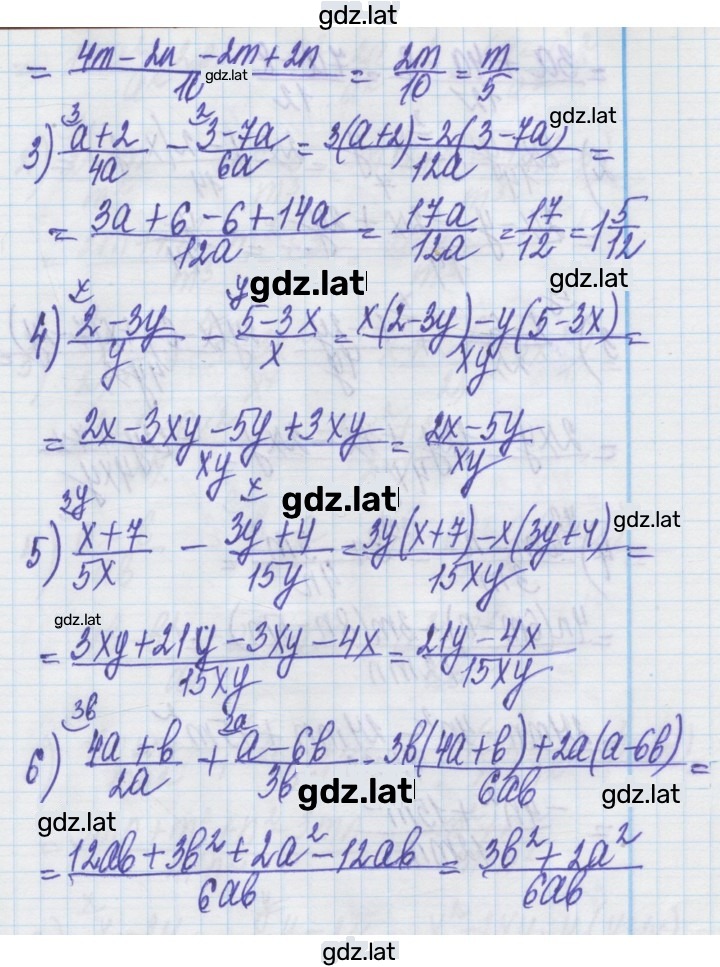 gdz.lat
= (4m - 2n - 2m + 2n)/10 = 2m/10 = m/5
gdz.lat
gdz.lat
3) (a+2)/4a ^3 - (3-7a)/6a ^2 = (3(a+2) - 2(3-7a))/12a =
= (3a + 6 - 6 + 14a)/12a = 17a/12a = 17/12 = 1 5/12
gdz.lat
gdz.lat
4) (2-3y)/y ^x - (5-3x)/x ^y = (x(2-3y) - y(5-3x))/xy =
= (2x - 3xy - 5y + 3xy)/xy = (2x-5y)/xy
gdz.lat
gdz.lat
5) (x+7)/5x ^3y - (3y+4)/15y ^x = (3y(x+7) - x(3y+4))/15xy =
gdz.lat
= (3xy + 21y - 3xy - 4x)/15xy = (21y - 4x)/15xy
6) (4a+b)/2a ^3b + (a-6b)/3b ^2a = (3b(4a+b) + 2a(a-6b))/6ab =
gdz.lat
gdz.lat
gdz.lat
= (12ab + 3b² + 2a² - 12ab)/6ab = (3b² + 2a²)/6ab
gdz.lat